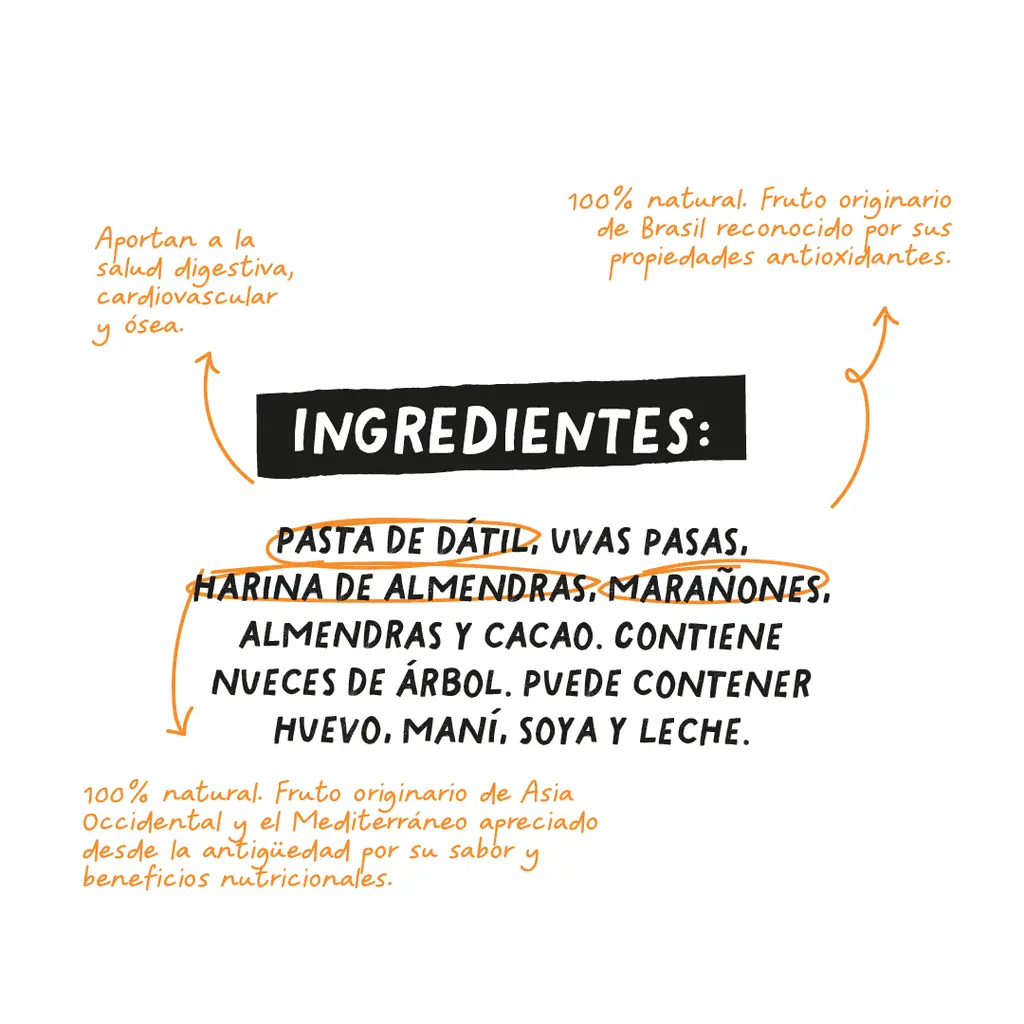 100% natural. Fruto originario
de Brasil reconocido por sus
propiedades antioxidantes.
Aportan a la
salud digestiva,
cardiovascular
y ósea.
INGREDIENTES:
PASTA DE DÁTIL, UVAS PASAS,
HARINA DE ALMENDRAS, MARAÑONES,
ALMENDRAS Y CACAO. CONTIENE
NUECES DE ÁRBOL. PUEDE CONTENER
HUEVO, MANÍ, SOYA Y LECHE.
100% natural. Fruto originario de Asia
Occidental y el Mediterráneo apreciado
desde la antigüedad por su sabor y
beneficios nutricionales.